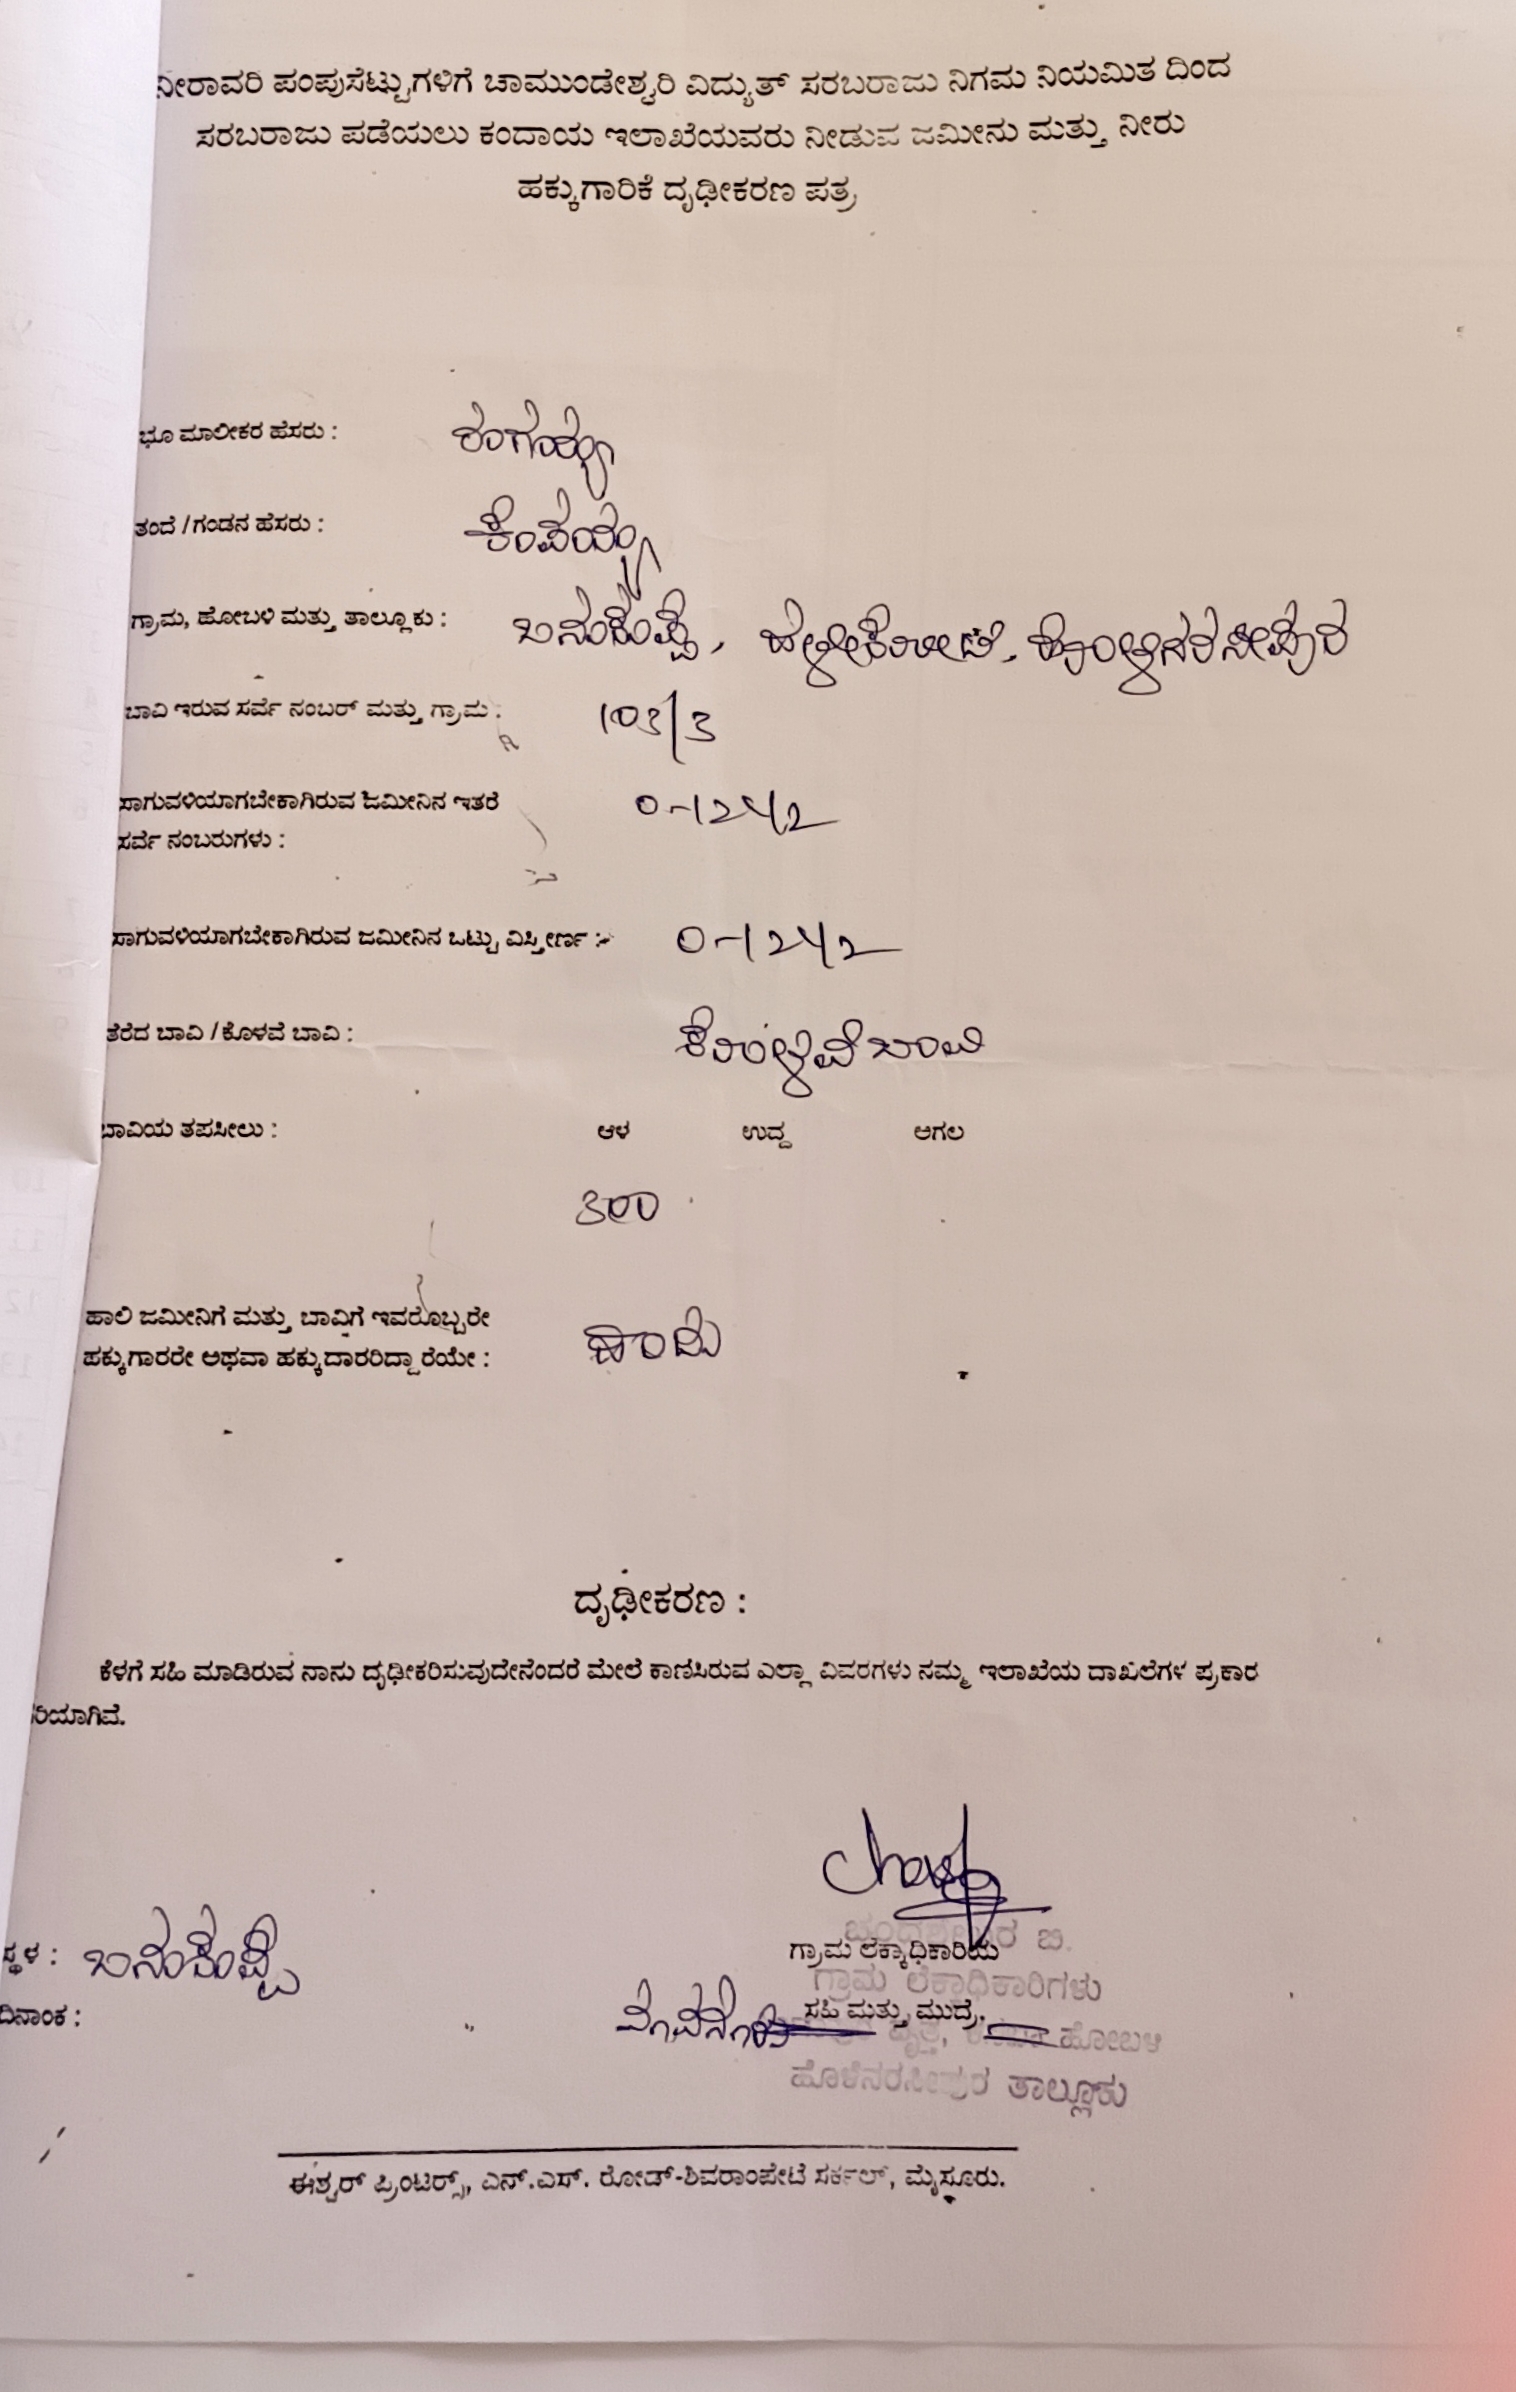 ನೀರಾವರಿ ಪಂಪುಸೆಟ್ಟುಗಳಿಗೆ ಚಾಮುಂಡೇಶ್ವರಿ ವಿದ್ಯುತ್ ಸರಬರಾಜು ನಿಗಮ ನಿಯಮಿತ ದಿಂದ
ಸರಬರಾಜು ಪಡೆಯಲು ಕಂದಾಯ ಇಲಾಖೆಯವರು ನೀಡುವ ಜಮೀನು ಮತ್ತು ನೀರು
ಹಕ್ಕುಗಾರಿಕೆ ದೃಢೀಕರಣ ಪತ್ರ
ಭೂ ಮಾಲೀಕರ ಹೆಸರು : ರಂಗಯ್ಯ
ತಂದೆ / ಗಂಡನ ಹೆಸರು : ಕೆಂಪಯ್ಯ
ಗ್ರಾಮ, ಹೋಬಳಿ ಮತ್ತು ತಾಲ್ಲೂಕು : ಬನುಕುಪ್ಪೆ, ಹಳೇಕೋಟೆ, ಹೊಳೆನರಸೀಪುರ
ಬಾವಿ ಇರುವ ಸರ್ವೆ ನಂಬರ್ ಮತ್ತು ಗ್ರಾಮ : 103/3
ಸಾಗುವಳಿಯಾಗಬೇಕಾಗಿರುವ ಜಮೀನಿನ ಇತರೆ 0-12 1/2
ಸರ್ವೆ ನಂಬರುಗಳು :
ಸಾಗುವಳಿಯಾಗಬೇಕಾಗಿರುವ ಜಮೀನಿನ ಒಟ್ಟು ವಿಸ್ತೀರ್ಣ :- 0-12 1/2
ತೆರೆದ ಬಾವಿ / ಕೊಳವೆ ಬಾವಿ : ಕೊಳವೆ ಬಾವಿ
ಬಾವಿಯ ತಪಸೀಲು : ಆಳ ಉದ್ದ ಅಗಲ
300
ಹಾಲಿ ಜಮೀನಿಗೆ ಮತ್ತು ಬಾವಿಗೆ ಇವರೊಬ್ಬರೇ ಹೌದು
ಹಕ್ಕುಗಾರರೇ ಅಥವಾ ಹಕ್ಕುದಾರರಿದ್ದಾರೆಯೇ :
ದೃಢೀಕರಣ :
ಕೆಳಗೆ ಸಹಿ ಮಾಡಿರುವ ನಾನು ದೃಢೀಕರಿಸುವುದೇನೆಂದರೆ ಮೇಲೆ ಕಾಣಿಸಿರುವ ಎಲ್ಲಾ ವಿವರಗಳು ನಮ್ಮ ಇಲಾಖೆಯ ದಾಖಲೆಗಳ ಪ್ರಕಾರ
ರಿಯಾಗಿವೆ.
ಚಂದ್ರಶೇಖರ ಬಿ.
ಸ್ಥಳ : ಬನುಕುಪ್ಪೆ ಗ್ರಾಮ ಲೆಕ್ಕಾಧಿಕಾರಿಯ
ಗ್ರಾಮ ಲೆಕ್ಕಾಧಿಕಾರಿಗಳು
ದಿನಾಂಕ : ಸಹಿ ಮತ್ತು ಮುದ್ರೆ.
ವೃತ್ತ, ಹೋಬಳಿ
ಹೊಳೆನರಸೀಪುರ ತಾಲ್ಲೂಕು
ಈಶ್ವರ್ ಪ್ರಿಂಟರ್ಸ್, ಎನ್.ಎಸ್. ರೋಡ್-ಶಿವರಾಂಪೇಟೆ ಸರ್ಕಲ್, ಮೈಸೂರು.